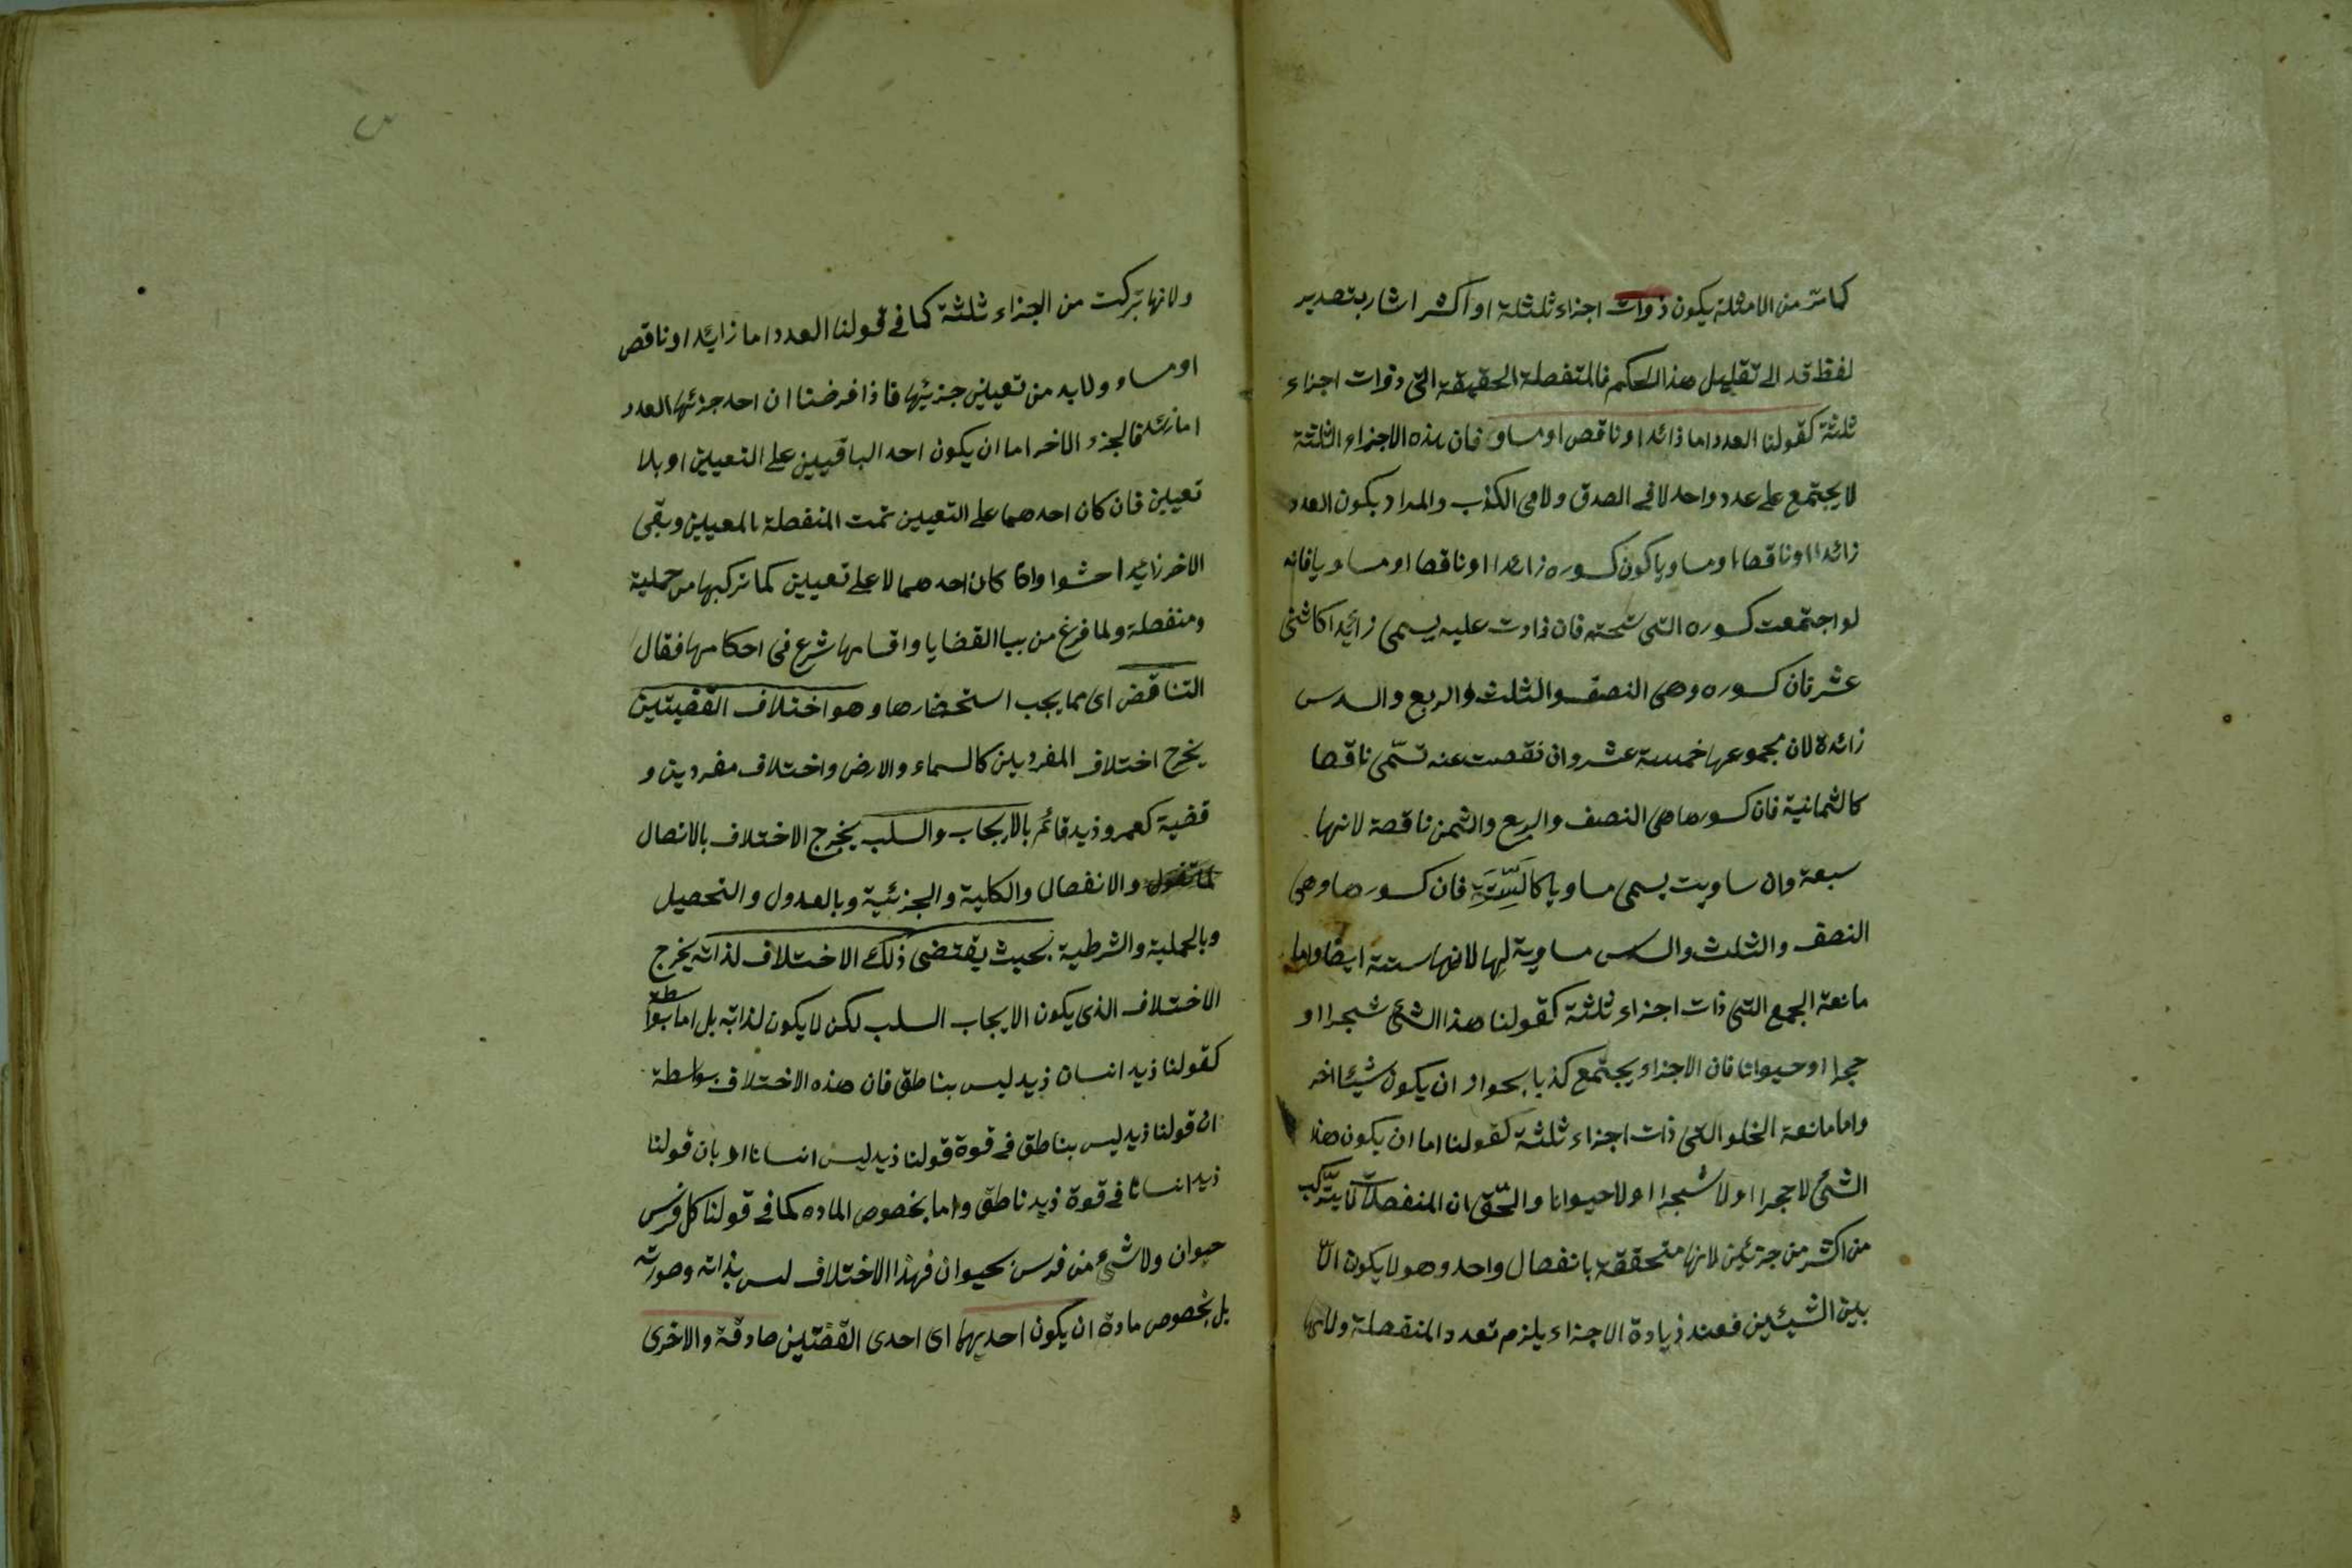 كما مر من الامثلة يكون ذوات اجزاء ثلثلة او اكثر اشار بتصدير
لفظ قد الى تقليل هذا الحكم فالمنفصلة الحقيقة التى ذوات اجزاء
ثلثة كقولنا العدد اما ذائد او ناقص او مساو فان هذه الاجزاء الثلثة
لا يجتمع على عدد واحد لا فى الصدق ولا فى الكذب والمراد بكون العدد
زائدا او ناقصا او مساويا كون كسوره زائدا او ناقصا او مساويا فانه
لو اجتمعت كسوره التى تحته فان ذادت عليه يسمى زائدا كاثنى
عشر فان كسوره وهى النصف والثلث والربع والسدس
زائدة لان مجموعها خمسة عشر وان نقصت عنه تسمى ناقصا
كالثمانية فان كسورها هى النصف والربع والثمن ناقصة لانها
سبعة وان ساويت يسمى مساويا كالستة فان كسورها وهى
النصف والثلث والسدس مساوية لها لانها ستة ايضا واما
مانعة الجمع التى ذات اجزاء ثلثة كقولنا هذا الشئ شجرا او
حجرا او حيوانا فان الاجزاء يجتمع كذبا بجواز ان يكون شيئا اخر
واما مانعة الخلو التى ذات اجزاء ثلثة كقولنا اما ان يكون هذا
الشئ لا حجرا او لا شجرا او لا حيوانا والحق ان المنفصلات لا يتركب
من اكثر من جزئين لانها متحققة بانفصال واحد وهو لا يكون الا
بين الشيئين فعند زيادة الاجزاء يلزم تعدد المنفصلة ولانها
ولانها تركبت من الجزاء ثلثة كما فى قولنا العدد اما زايد او ناقص
او مساو ولا بد من تعيين جزئيها فاذا فرضنا ان احد جزئها العدد
اما زئد فالجزء الاخر اما ان يكون احد الباقيين على التعيين او بلا
تعيين فان كان احدهما على التعيين تمت المنفصلة بالمعيين وبقى
الاخر زايدا حشوا وان كان احدهما لا على تعيين كما تركبها من حملية
ومنفصلة ولما فرغ من بيا القضايا واقسامها شرع فى احكامها فقال
التناقض اى مما يجب استحضارها وهو اختلاف القضيتين
يخرج اختلاف المفردين كالسماء والارض واختلاف مفردين و
قضية كعمرو وذيد قائم بالايجاب والسلب يخرج الاختلاف بالاتصال
والانفصال والكلية والجزئية وبالعدول والتحصيل
وبالحملية والشرطية بحيث يقتضى ذلك الاختلاف لذاته يخرج
الاختلاف الذى يكون الايجاب السلب لكن لا يكون لذاته بل اما بواسطة
كقولنا ذيد انسان ذيد ليس بناطق فان هذه الاختلاف بواسطة
ان قولنا ذيد ليس بناطق فى قوة قولنا ذيد ليس انسانا او بان قولنا
ذيد انسان فى قوة ذيد ناطق واما بخصوص الماده كما فى قولنا كل فرس
حيوان ولا شئ من فرس بحيوان فهذا الاختلاف ليس بذاته وصورته
بل بخصوص مادة ان يكون احديهما اى احدى القضتين صادقة والاخرى